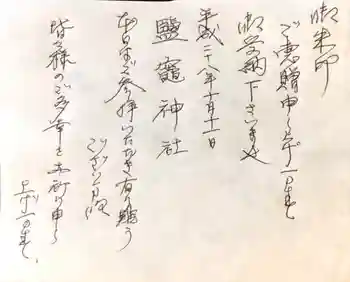 御朱印
ご恵贈申し上げますので
御受納下さいませ
平成二十八年十月十一日
鹽竈神社
本日はご参拝いただき有り難う
ございます
皆々様のご多幸をお祈り申し
上げます。